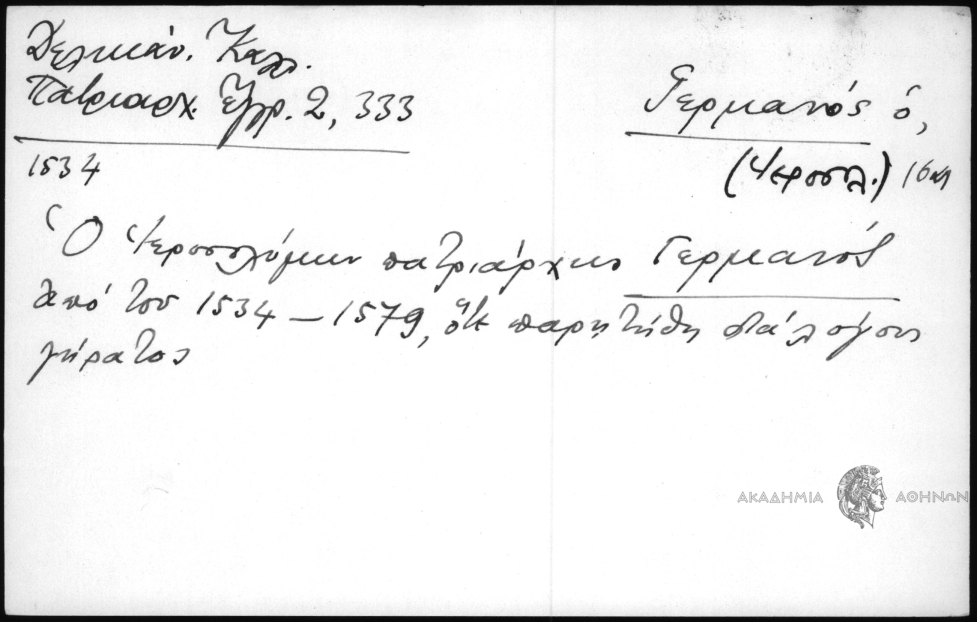 Δελικάν. Καλλ.
Πατριαρχ. Ἔγγρ. 2, 333
Γερμανός ὁ,
(Ἱεροσολ.) 16 αι
1534
Ὁ Ἱεροσολύμων πατριάρχης Γερμανός
ἀπό του 1534 – 1579, ὅτε παρητήθη διά λόγους
γήρατος
ΑΚΑΔΗΜΙΑ ΑΘΗΝΩΝ